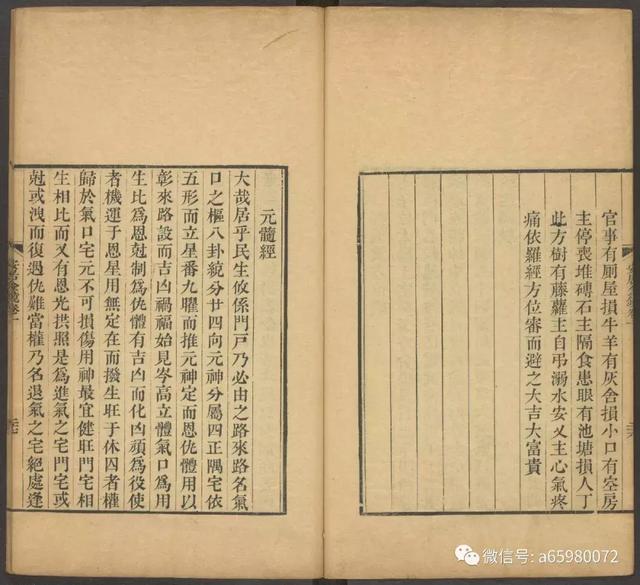 官事有厠屋損牛羊有灰舍損小口有空房
主停喪堆磚石主隔食患眼有池塘損人丁
此方樹有藤蘿主自弔溺水安乂主心氣疼
痛依羅經方位審而避之大吉大富貴
元髓經
大哉居乎民生攸係門戸乃必由之路來路名氣
口之樞八卦統分廿四向元神分屬四正隅宅依
五形而立星番九曜而推元神定而恩仇體用以
彰來路設而吉凶禍福始見岑高立體氣口爲用
生比爲恩尅制爲仇體有吉凶而化凶頑爲役使
者機運于恩星用無定在而撥生旺于休囚者權
歸於氣口宅元不可損傷用神最宜健旺門宅相
生相比而又有恩光拱照是爲進氣之宅門宅或
尅或洩而復遇仇難當權乃名退氣之宅絕處逢
卷一
微信号: a65980072